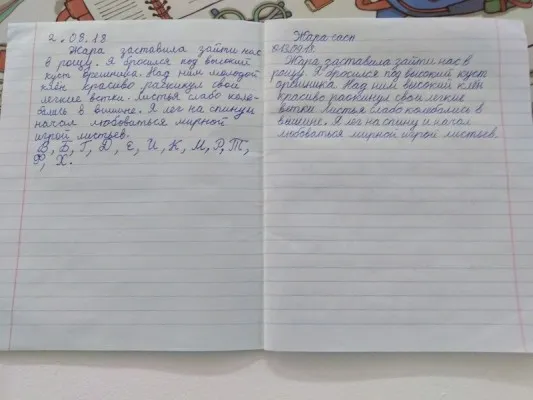 2.09.18
Жара заставила зайти нас
в рощу. Я бросился под высокий
куст орешника. Над ним молодой
клён красиво раскинул свои
лёгкие ветки. Листья слабо коле-
бались в вышине. Я лёг на спину и
начал любоваться мирной
игрой листьев.
В, Б, Г, Д, Е, И, К, М, Р, Т,
Ф, Х.
Жара
Жара заставила зайти нас в
рощу. Я бросился под высокий куст
орешника. Над ним высокий клён
красиво раскинул свои лёгкие
ветки. Листья слабо
вышине. Я лёг на спину и начал
любоваться мирной игрой листьев.